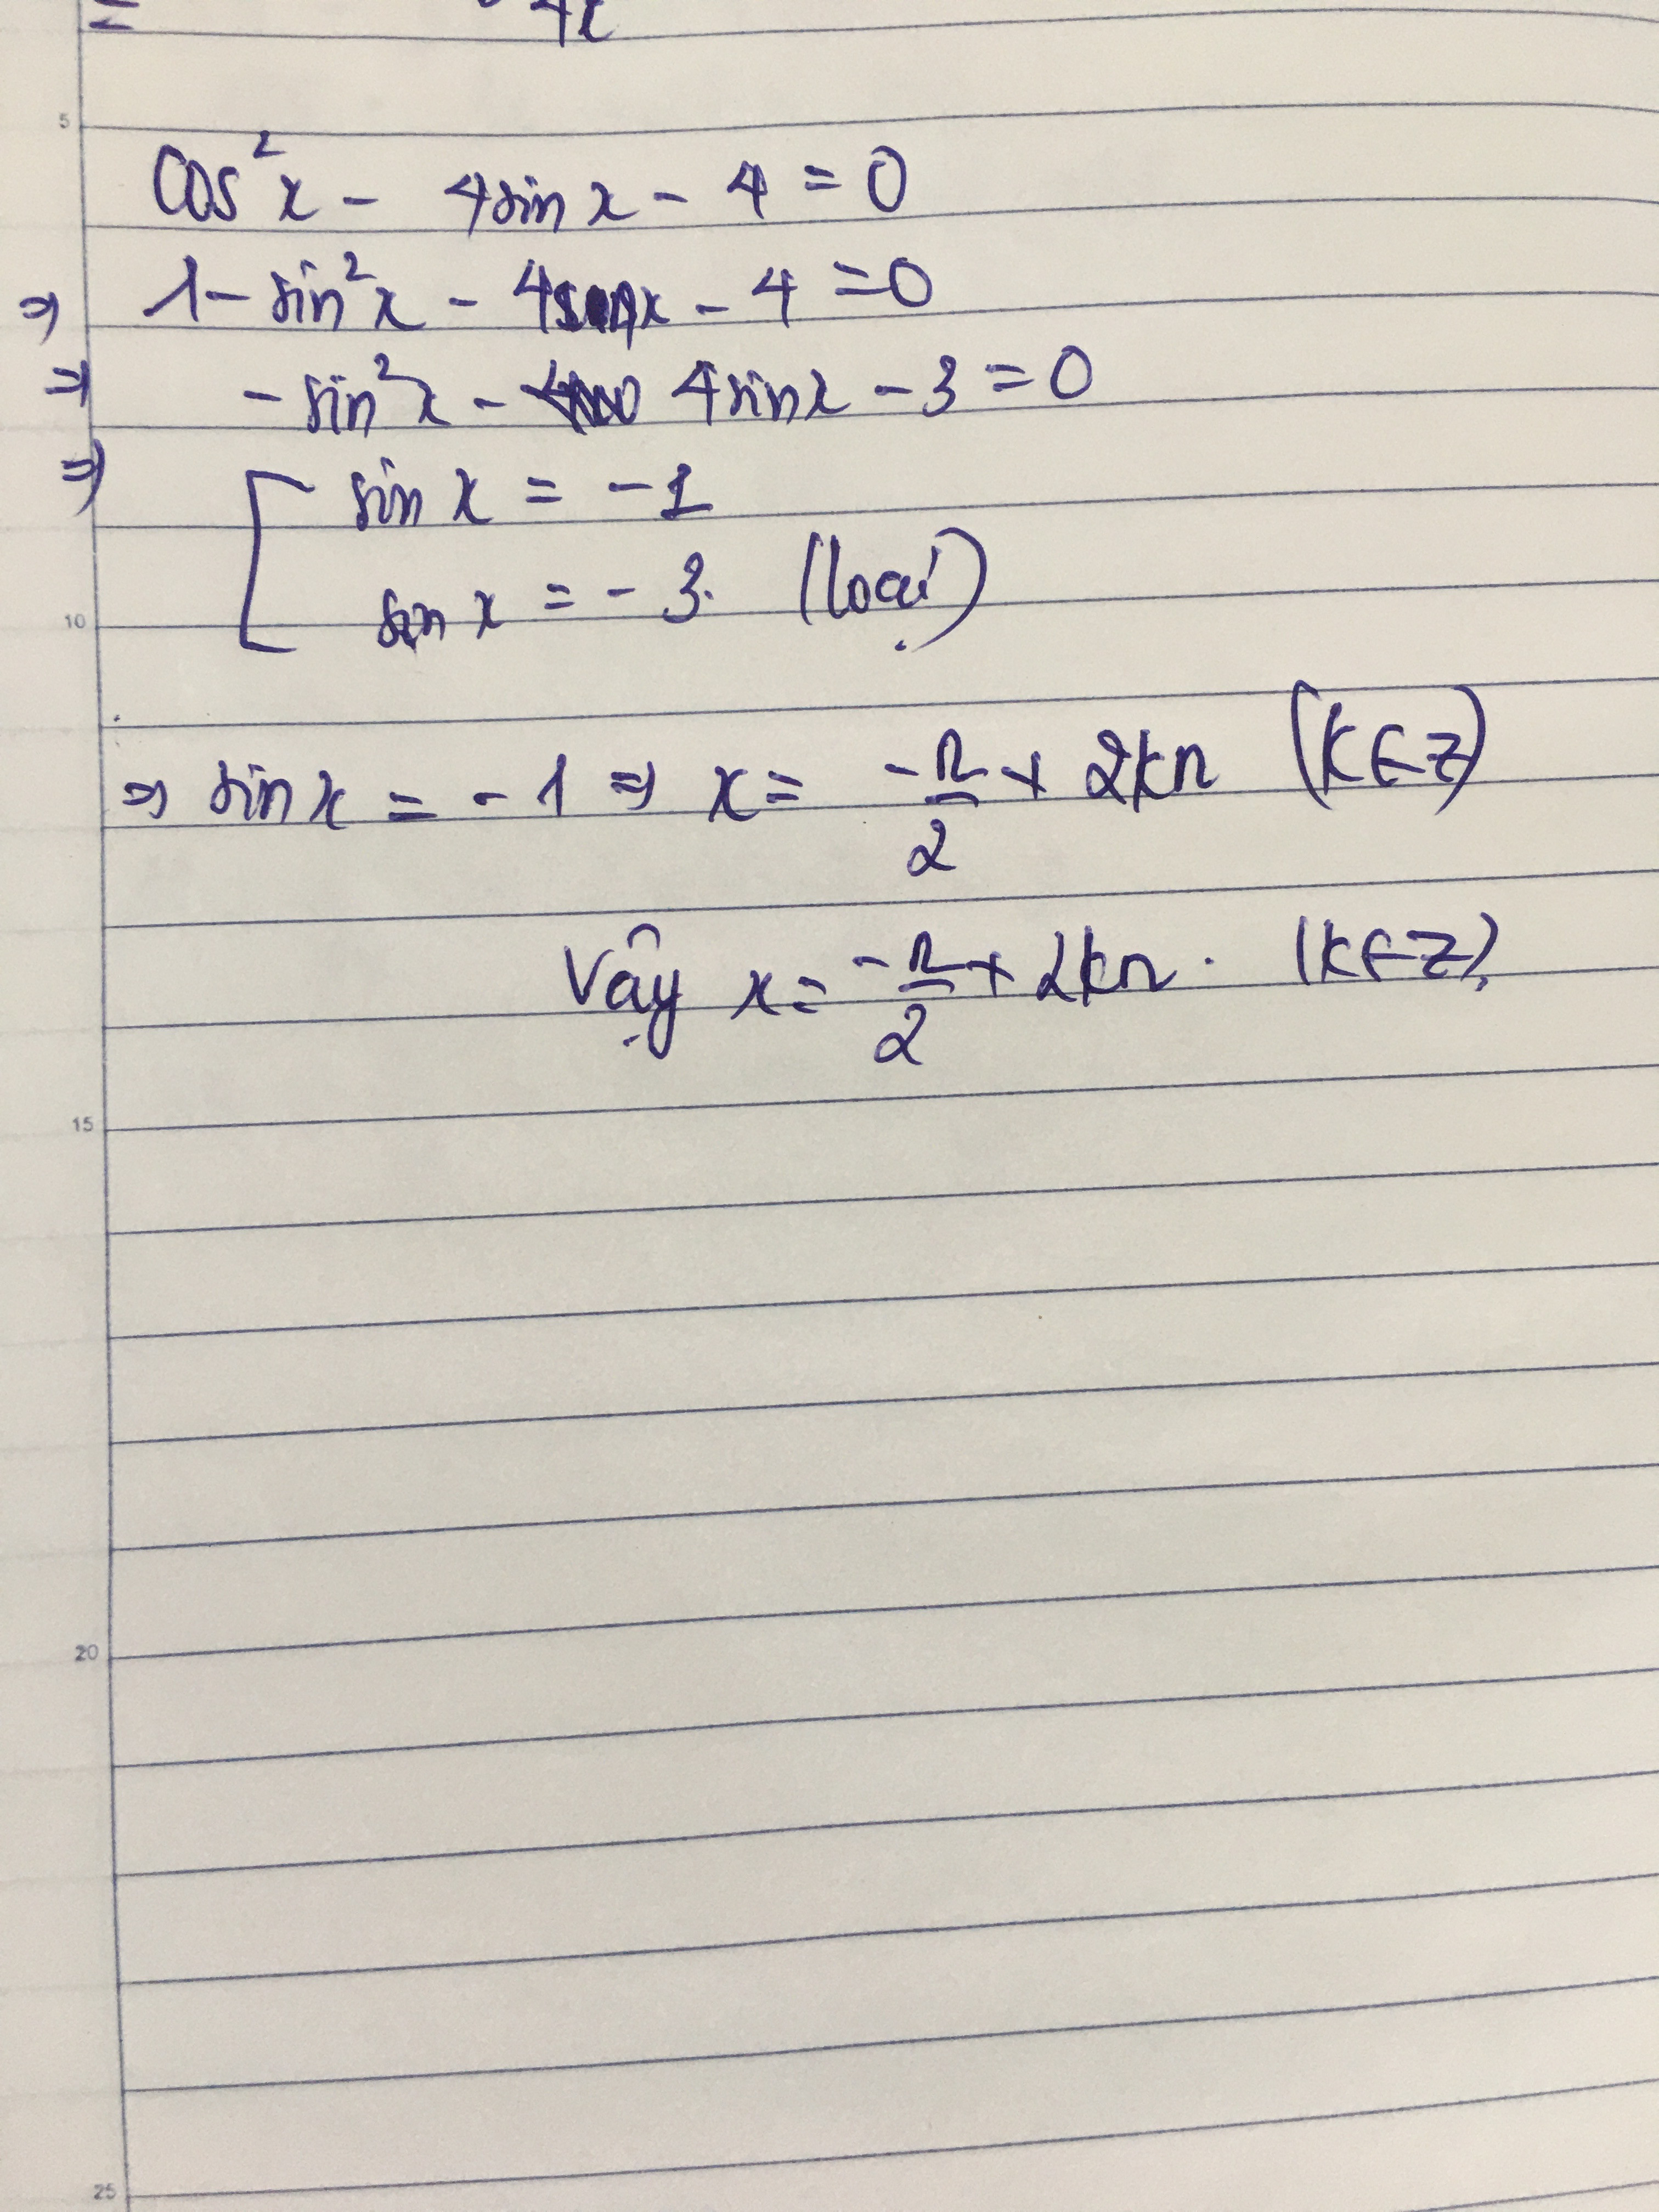 = 4x
5
cos²x - 4sinx - 4 = 0
⇒ 1 - sin²x - 4sinx - 4 = 0
⇒ - sin²x - 4sinx - 3 = 0
⇒ [ sin x = -1
sin x = -3. (loại)
10
⇒ sin x = -1 ⇒ x = -π/2 + 2kπ (k∈Z)
Vậy x = -π/2 + 2kπ. (k∈Z),
15
20
25